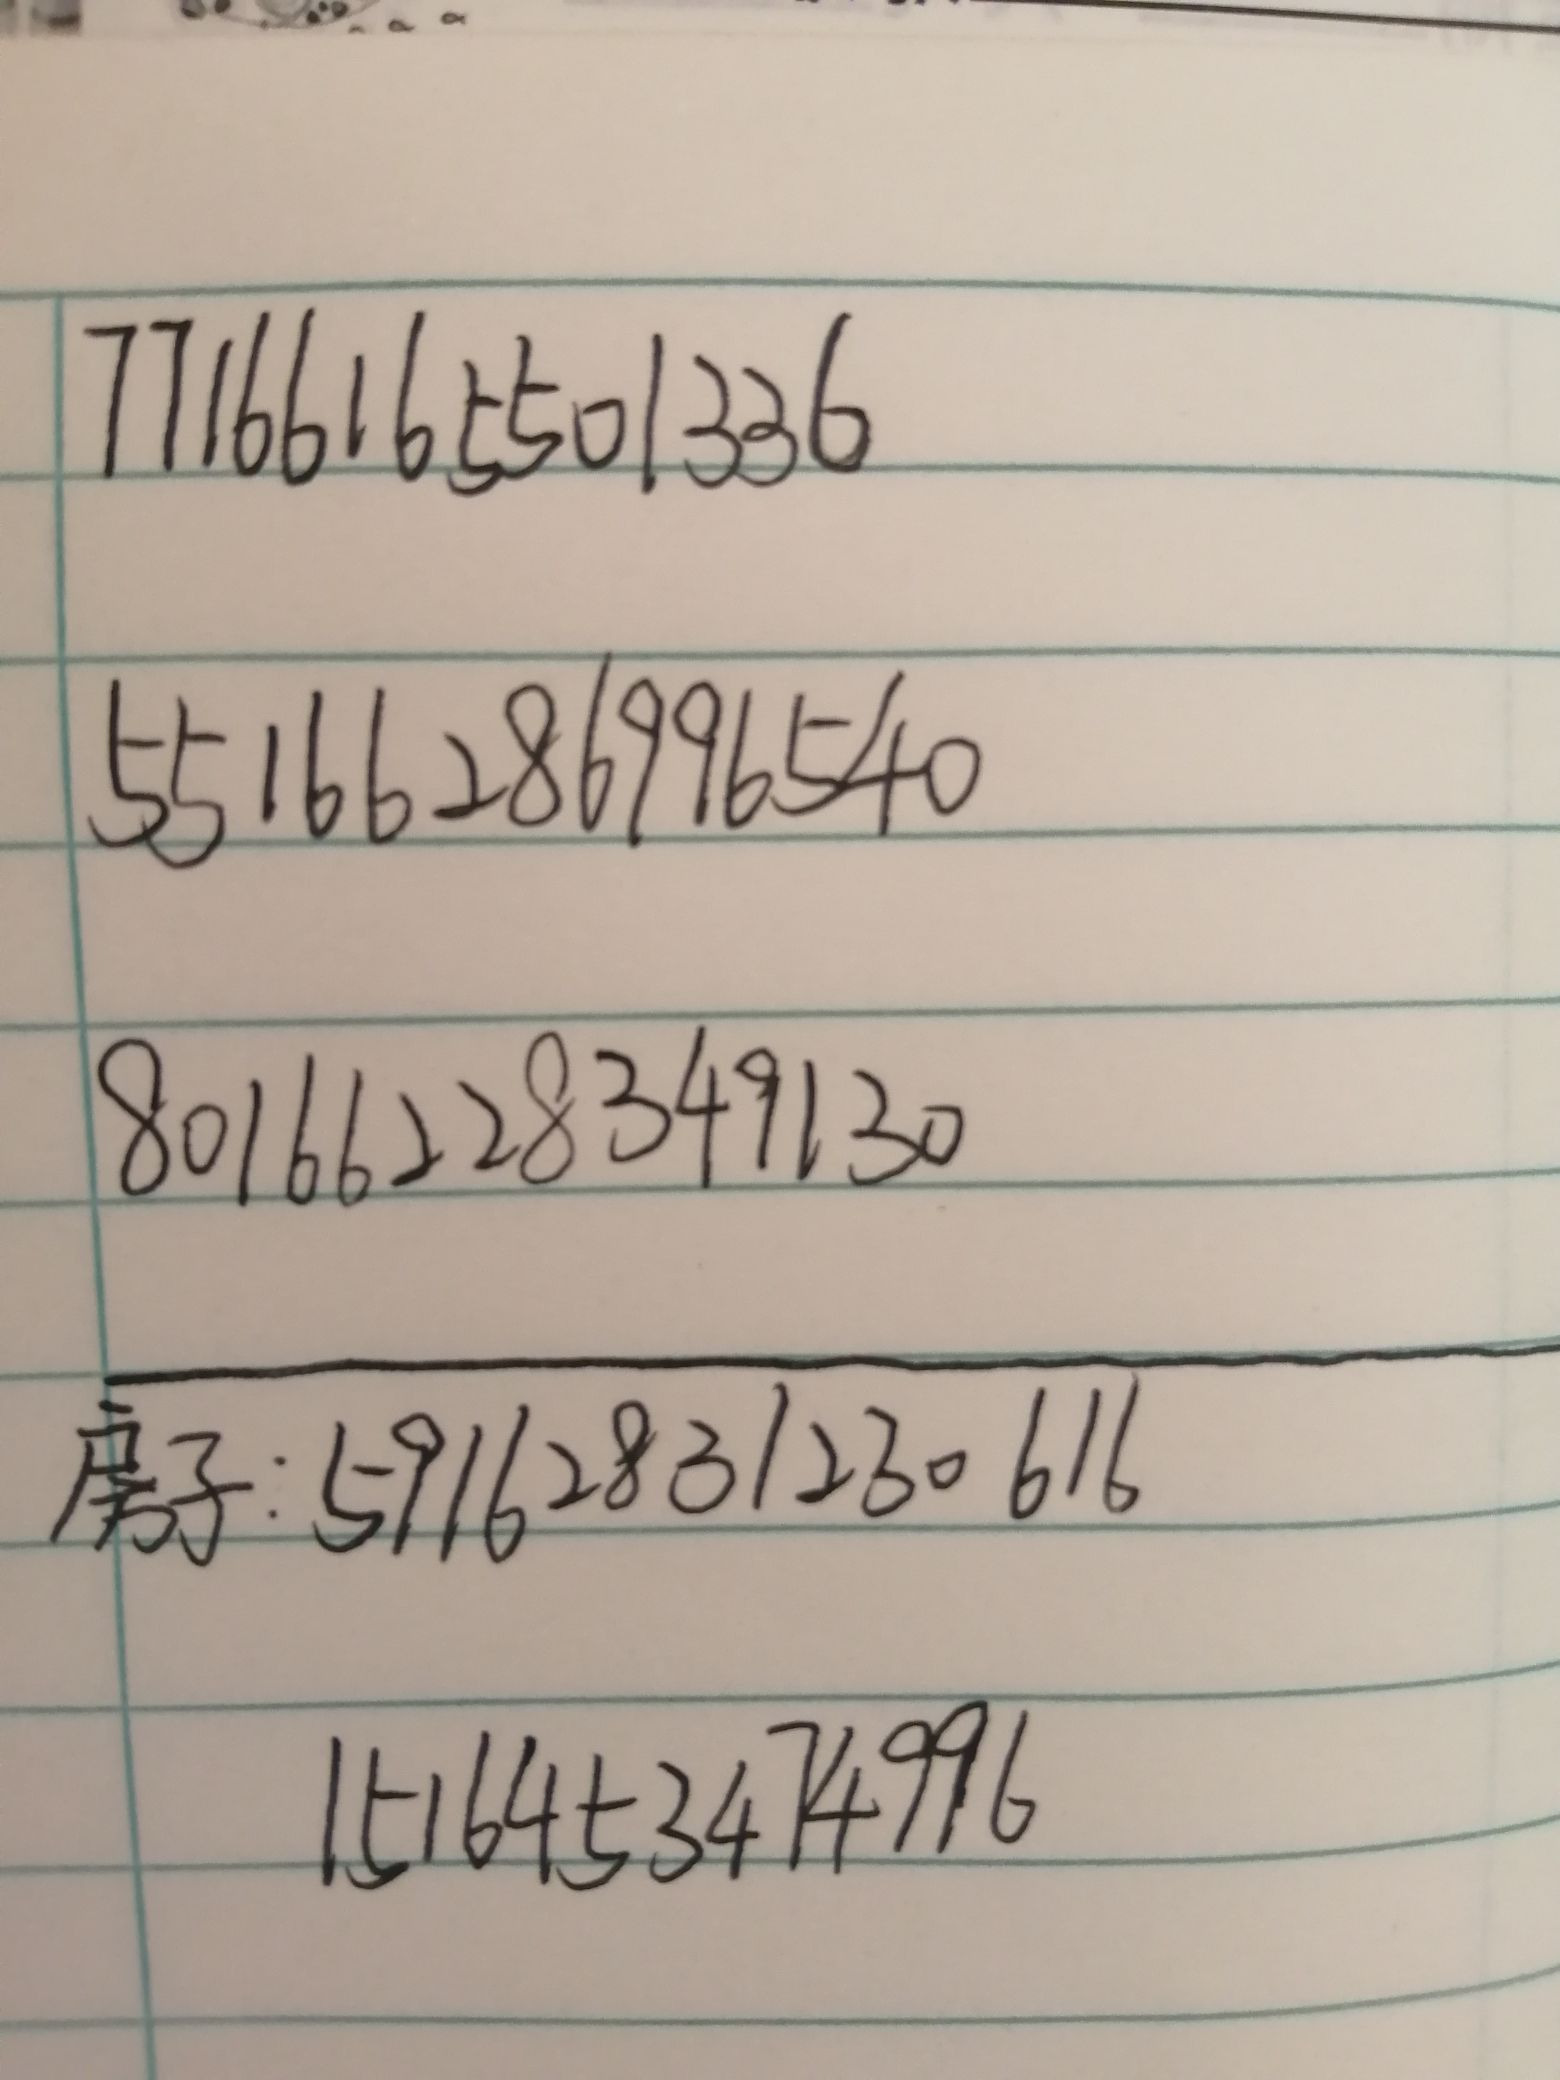 77166165501336
55166286996540
80166228349130
房子:59162831230616
1516453474996